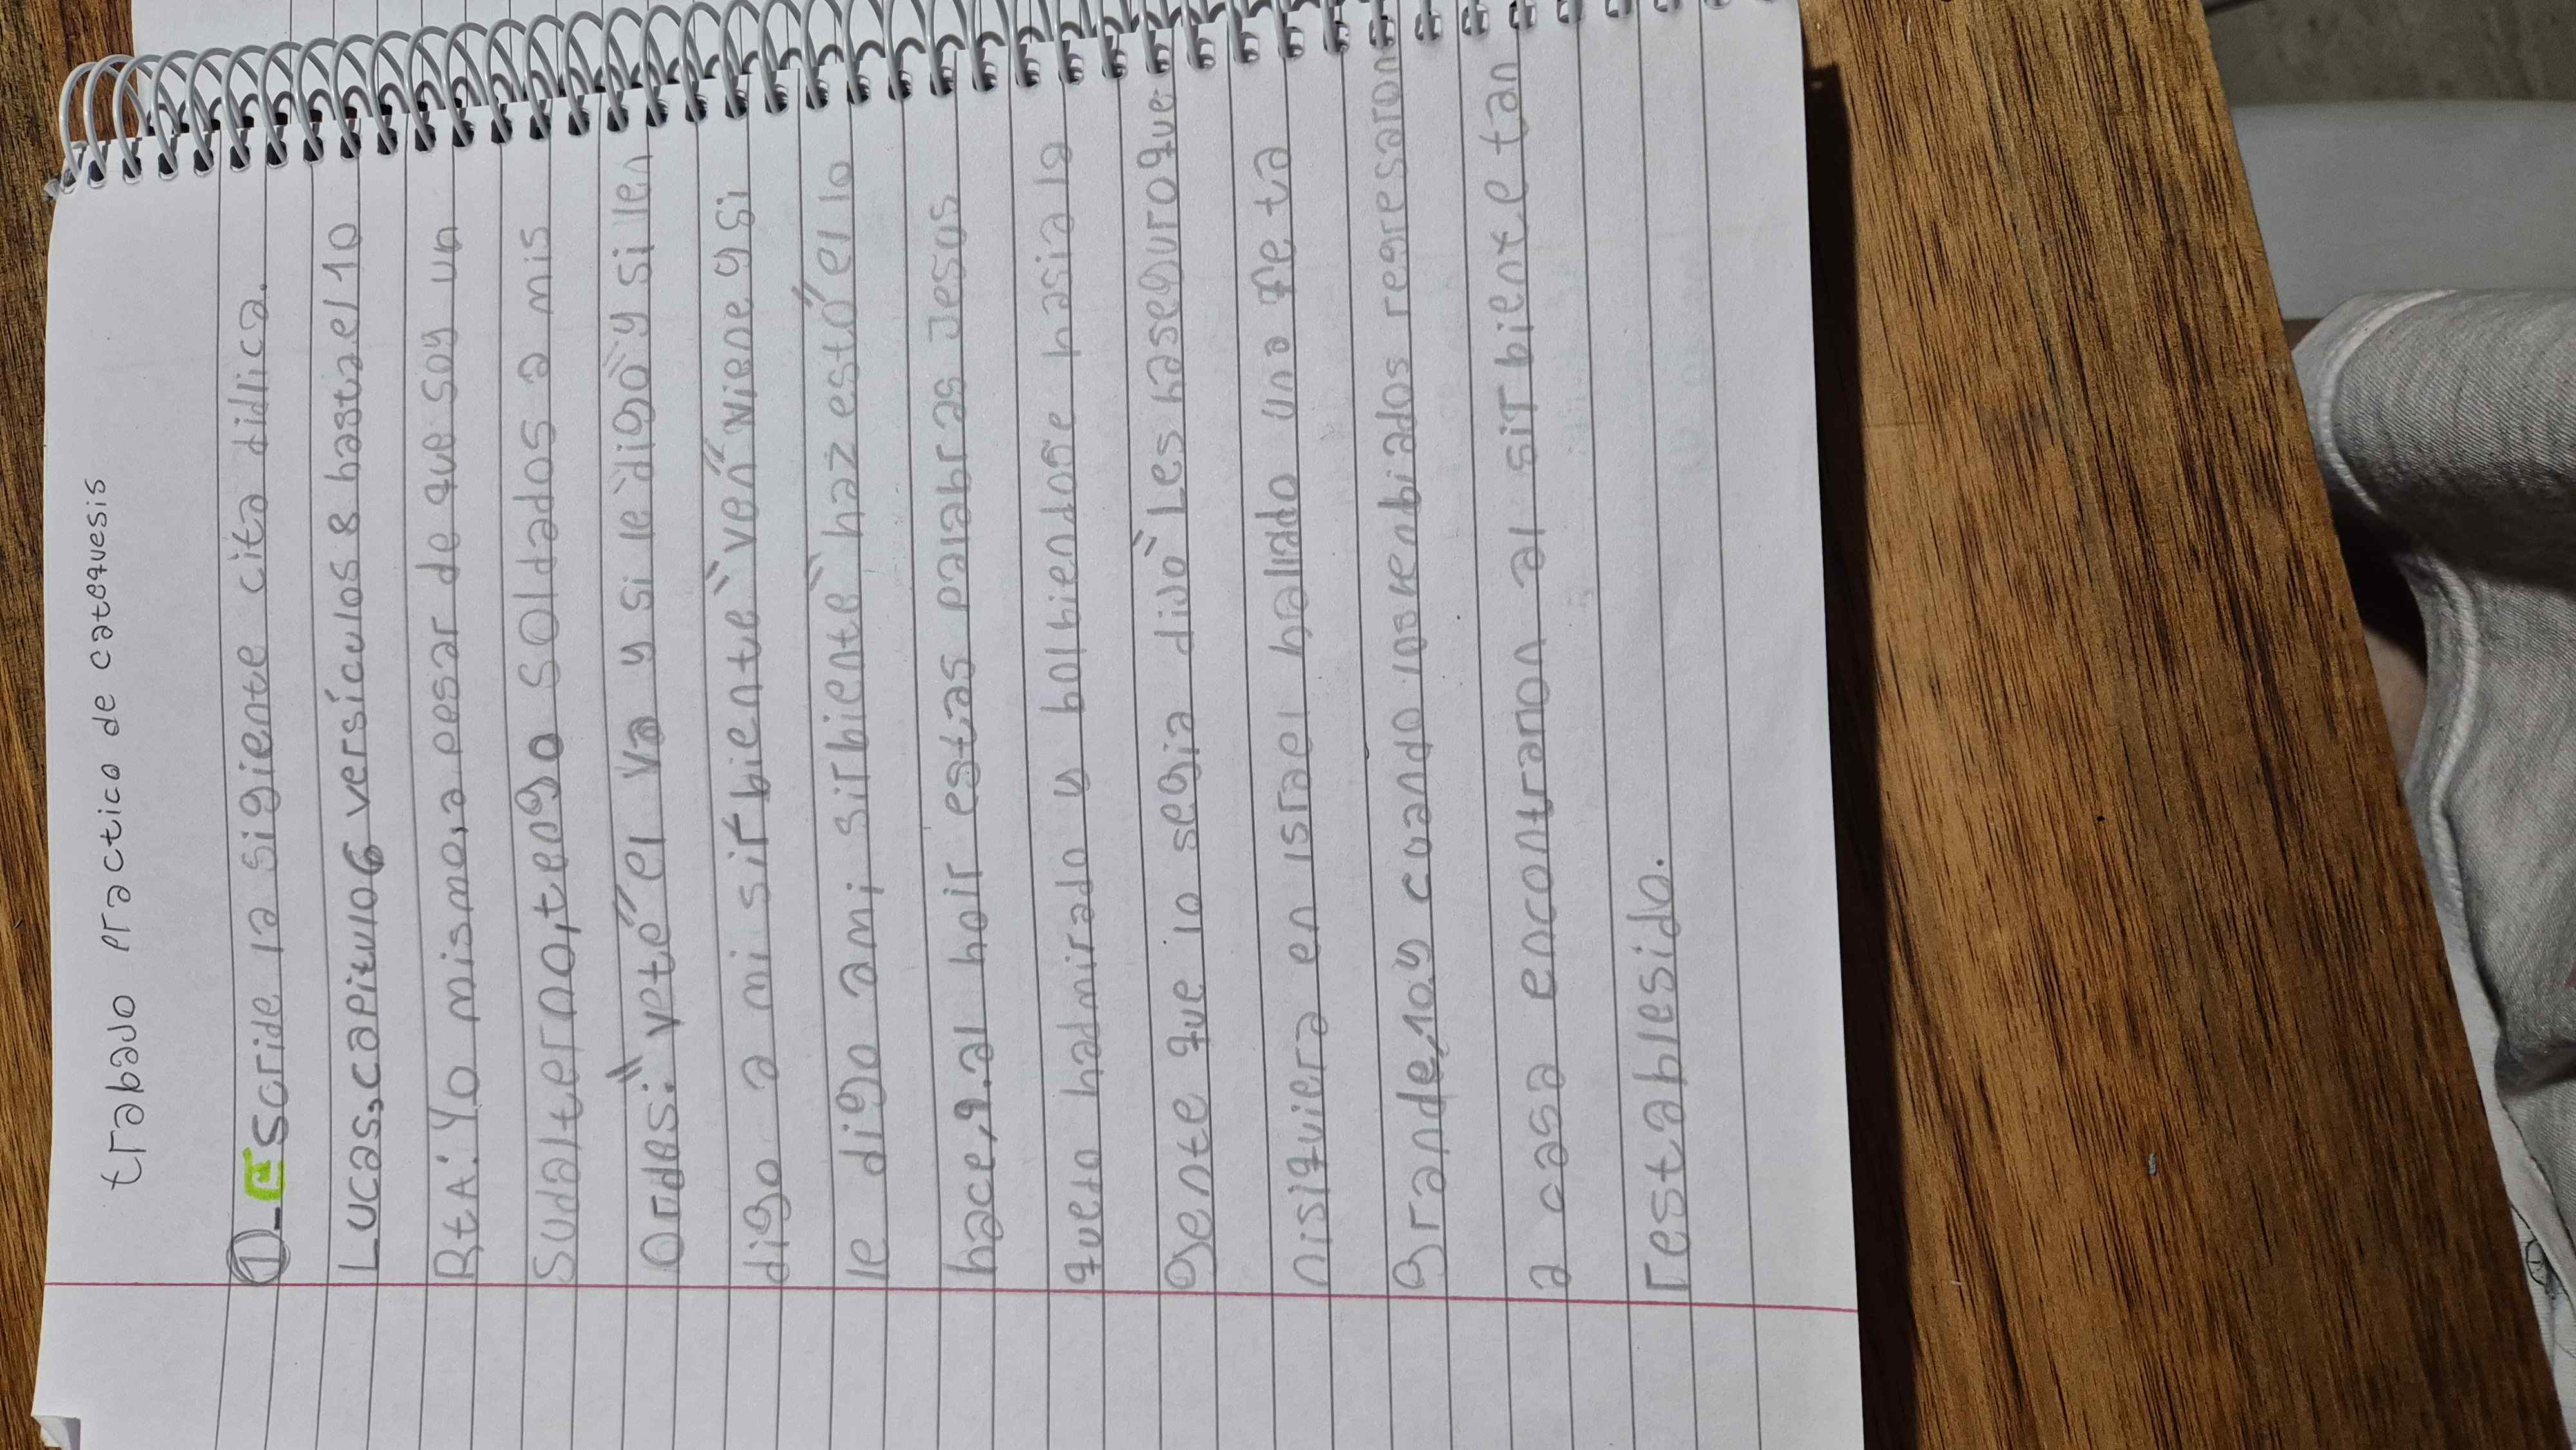 trabajo practico de catequesis
1_ Escride la sigiente cita didlica.
Lucas, capitulo 6 versículos 8 hasta el 10
RtA: Yo mismo, a pesar de que soy un
Sudalterno, tengo soldados a mis
Ordes: "vete" el va y si le digo "y si len
digo a mi sirbiente "ven" viene y si
le digo ami sirbiente "haz esto" el lo
hace, 9. al hoir estas palabras Jesos
quedo hadmirado y bolbiendose hasia la
gente que lo segia dijo "Les haseguro que
nisiquiera en israel hallado una fe ta
Grande, 10. y cuando los henbiados regresaron
a casa encontraron al sirbiente tan
restablesido.